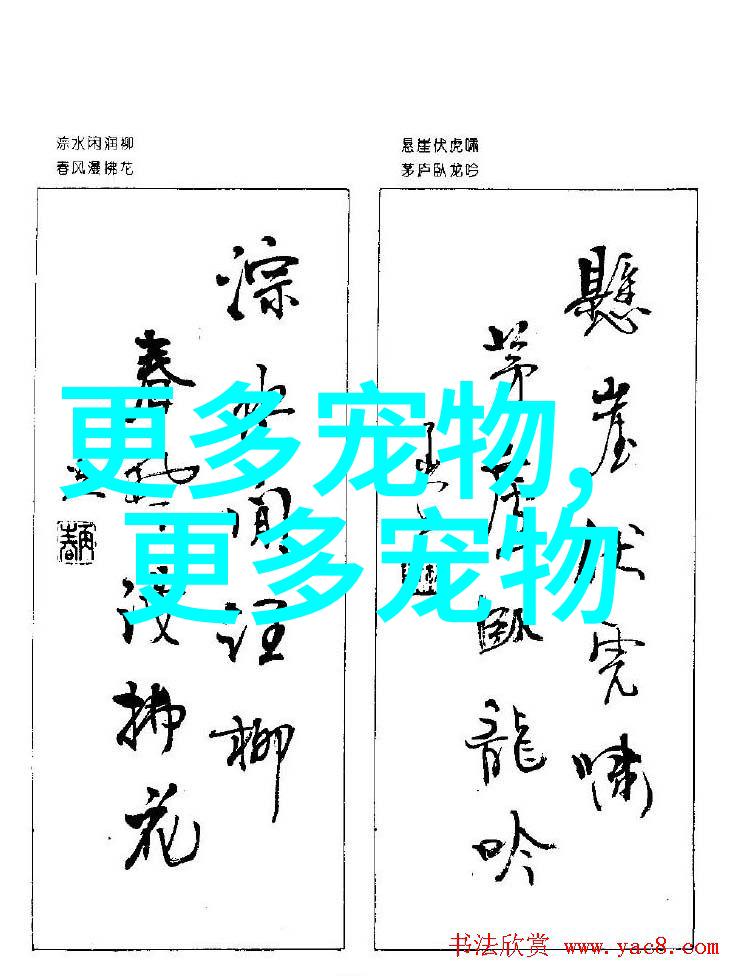 淙水闲润柳
春风漫拂花
悬崖伏虎啸
茅庐卧龙吟
淙水闲润柳
春风漫拂花
悬崖伏虎啸
茅庐卧龙吟
更多宠物,
更多宠物
书法欣赏 www.yac8.com